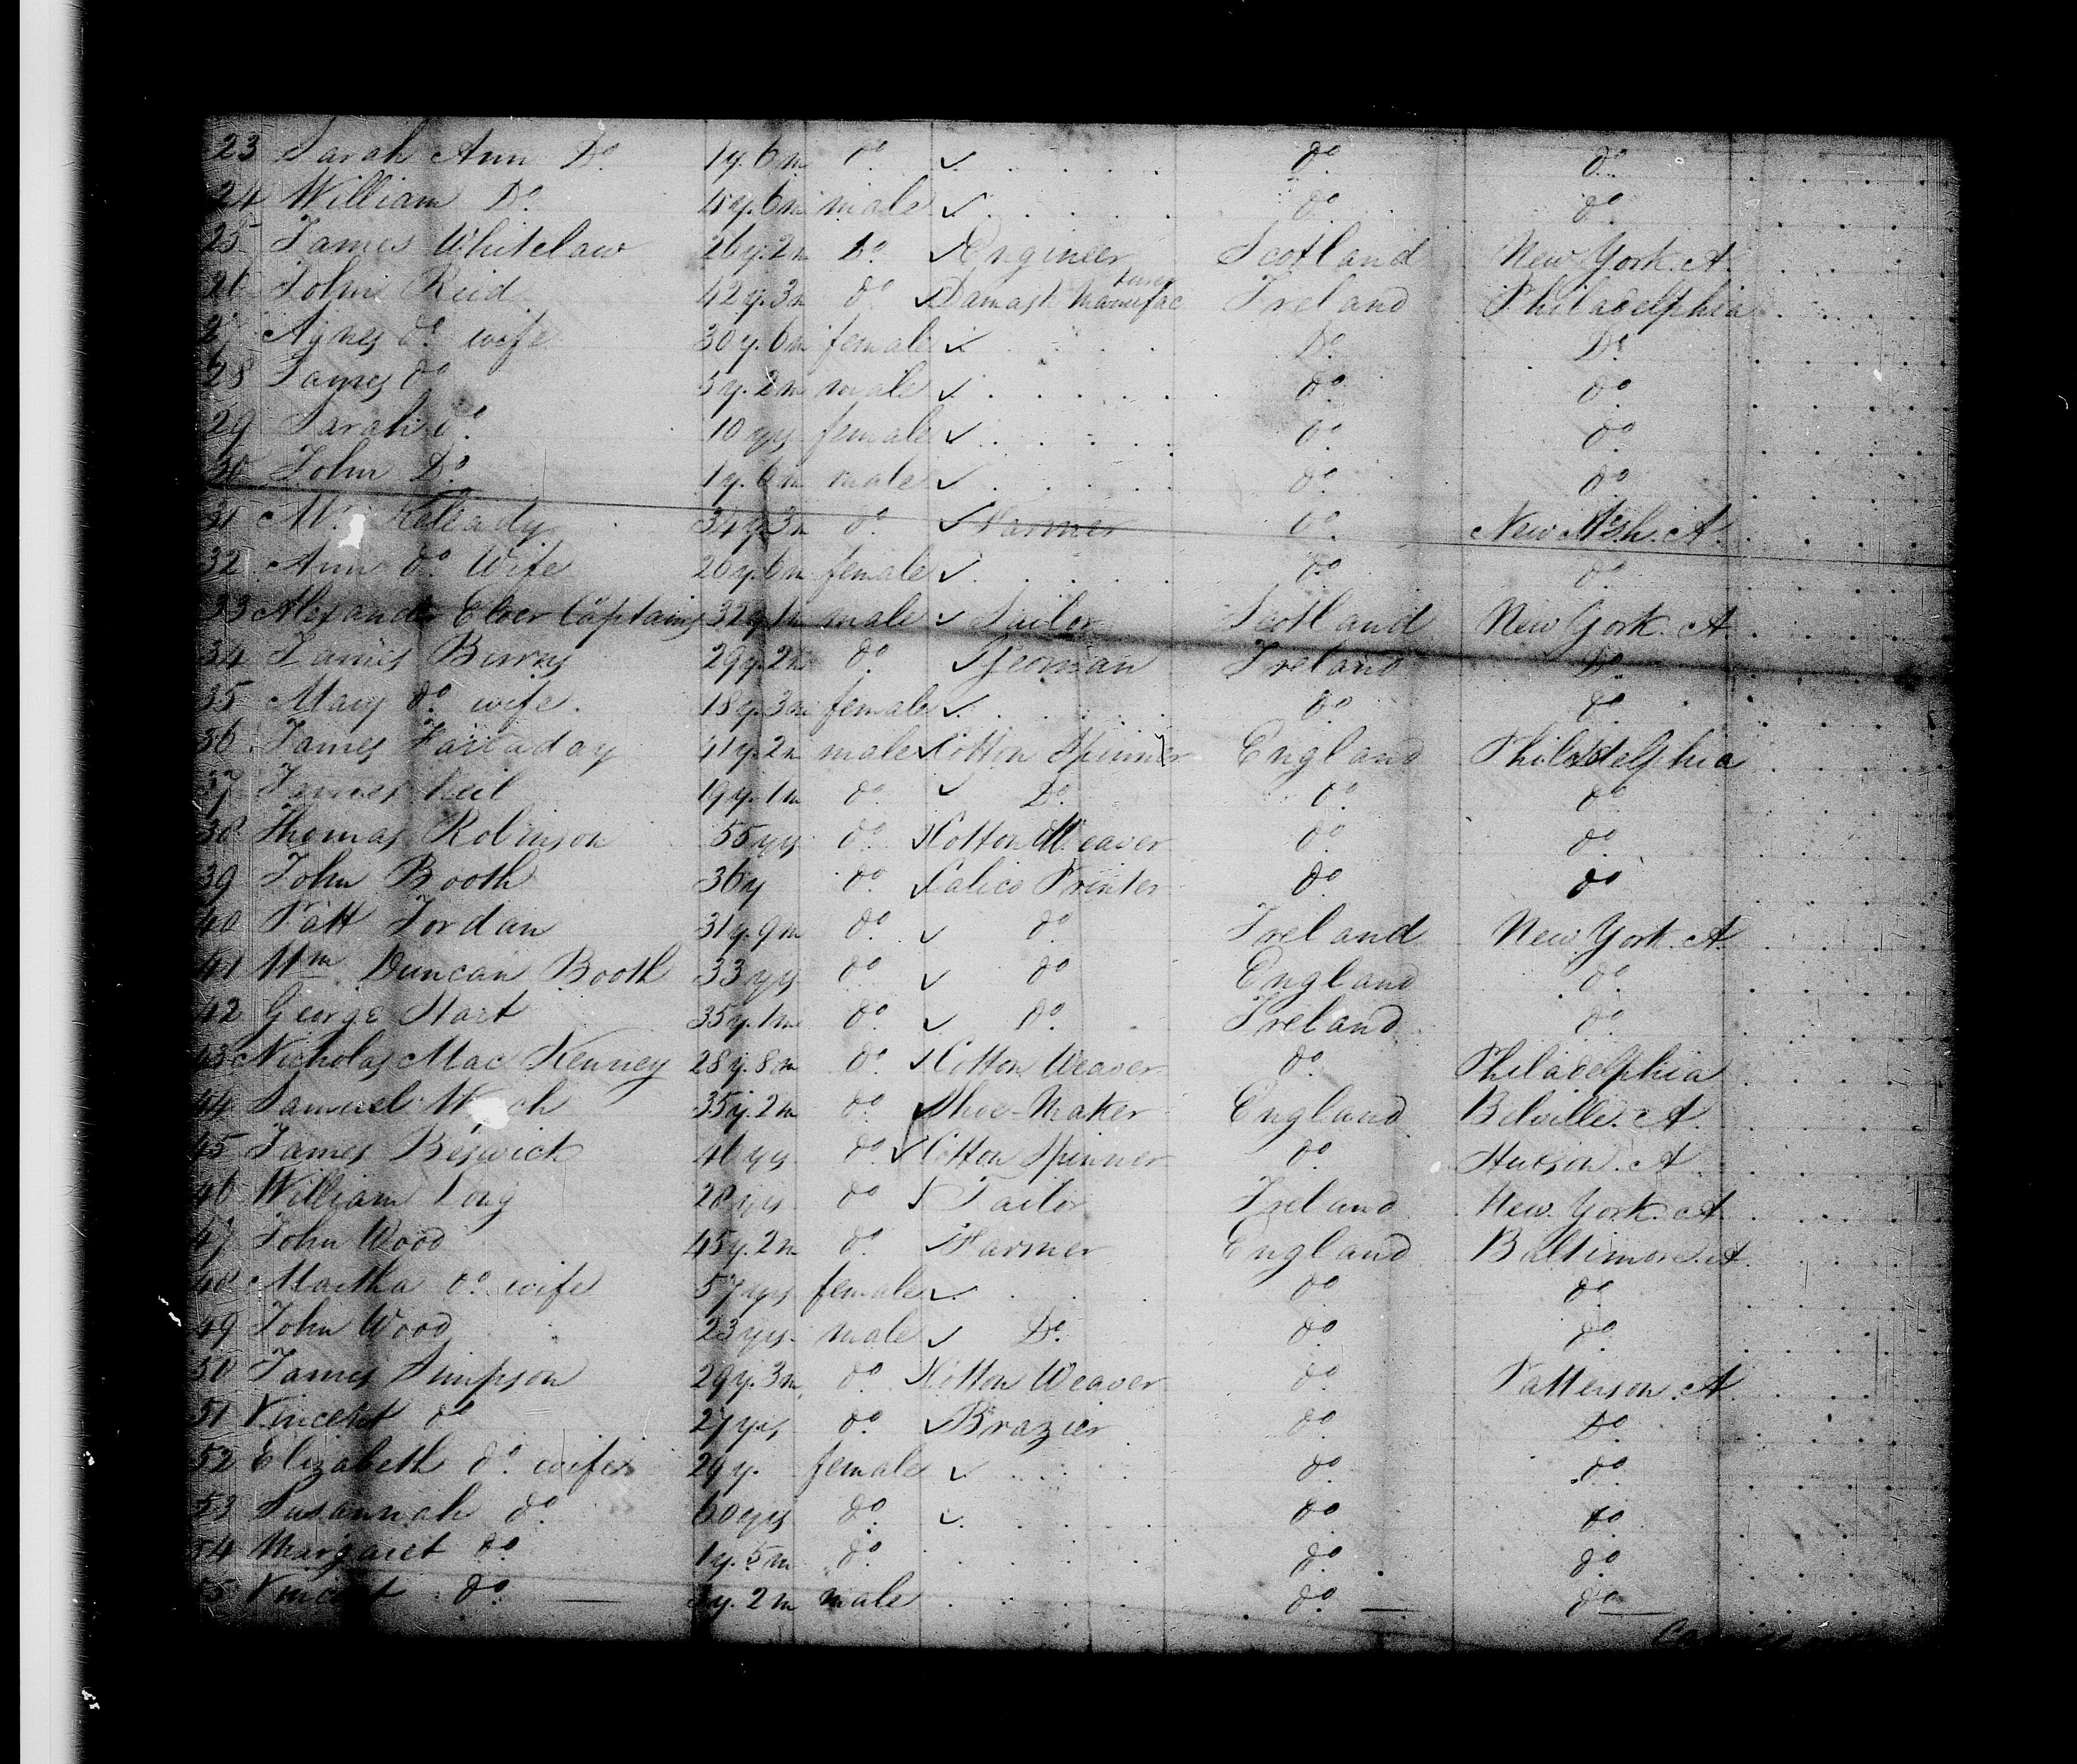 23 Sarah Ann Do. 1y. 6m do. do. do.
24 William Do. 4y. 6m male do. do.
25 James Whitelaw 26y. 2m Do. Engineer Scotland New York. A.
26 John Reid 42y. 3m do. Damask Manufacturer Ireland Philadelphia
27 Agnes do. wife 30y. 6m female Do. Do.
28 James do. 5y. 2m male do. do.
29 Sarah do. 10 yrs female do. do.
30 John Do. 1y. 6m male do. do.
31 34y. 3m do. Farmer do. New
32 Ann do. Wife 20y. 6m female do. do.
33 Alexander Captain 32y. 1m male Sailor Scotland New York. A.
34 James Burns 29y. 2m do. Yeoman Ireland Do.
35 Mary do. wife. 18y. 3m female do. do.
36 James Farraday 41y. 2m male Cotton Spinner England Philadelphia
37 James Neil 19y. 1m do. Do. do. do.
38 Thomas Robinson 55 yrs do. Cotton Weaver do. do.
39 John Booth 36y do. Calico Printer do. do
40 Patt Jordan 31y. 9m do. do. Ireland New York. A.
41 Wm. Duncan Booth 33 yrs do. do England do.
42 George Hart 35y. 1m do. Do. Ireland. do.
43 Nicholas Mac Kenney 28y. 8m do. Cotton Weaver do. Philadelphia
44 Samuel 35y. 2m do. Shoe-Maker England Bilville. A.
45 James Beswick 46 yrs do. Cotton Spinner do. Hudson. A.
46 William 28 yrs do Tailor Ireland New York. A.
47 John Wood 45y. 2m do. Farmer England Baltimore. A.
48 Martha do. wife 57 yrs female do do.
49 John Wood 23 yrs male Do. do. do.
50 James Simpson 29y. 3m do. Cotton Weaver do. Patterson. A.
51 Vincent do 27 yrs do. Brazier do. Do.
52 Elizabeth do. wife 29y. female do. do.
53 Susannah do. 60 yrs do. do. do.
54 Margaret do. 1y. 5m do. do. do.
55 Vincent do. 3y. 2m male do. do.